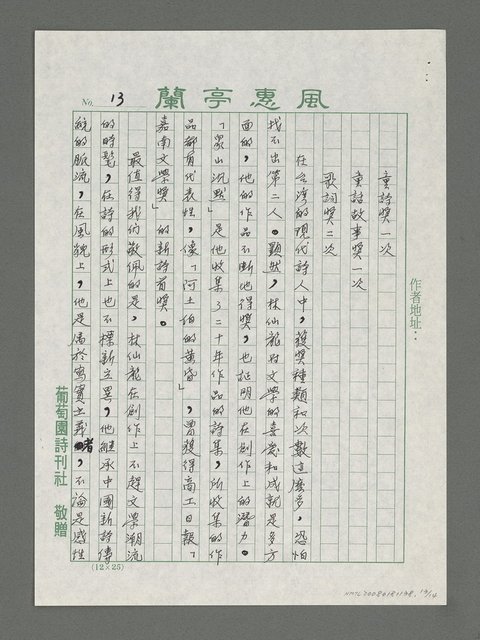 風惠亭蘭
No. 13
作者地址：
童詩獎一次
童話故事獎一次
歌詞獎二次
在台灣的現代詩人中，獲獎種類和次數這麼多，恐怕
找不出第二人。顯然，林仙龍對文學的喜愛和成就是多方
面的，他的作品不斷地得獎，也証明他在創作上的潛力。
「眾山沉默」是他收集了二十年作品的詩集，所收集的作
品都有代表性，像「阿土伯的黃昏」，曾獲得商工日報「
嘉南文學獎」的新詩首獎。
最值得我們敬佩的是，林仙龍在創作上不趕文學潮流
的時髦，在詩的形式上也不標新立異，他繼承中國新詩傳
統的脈流，在風貌上，他是屬於寫實主義者，不論是感性
葡萄園詩刊社 敬贈
(12×25)
NMTL20080181198. 13/14